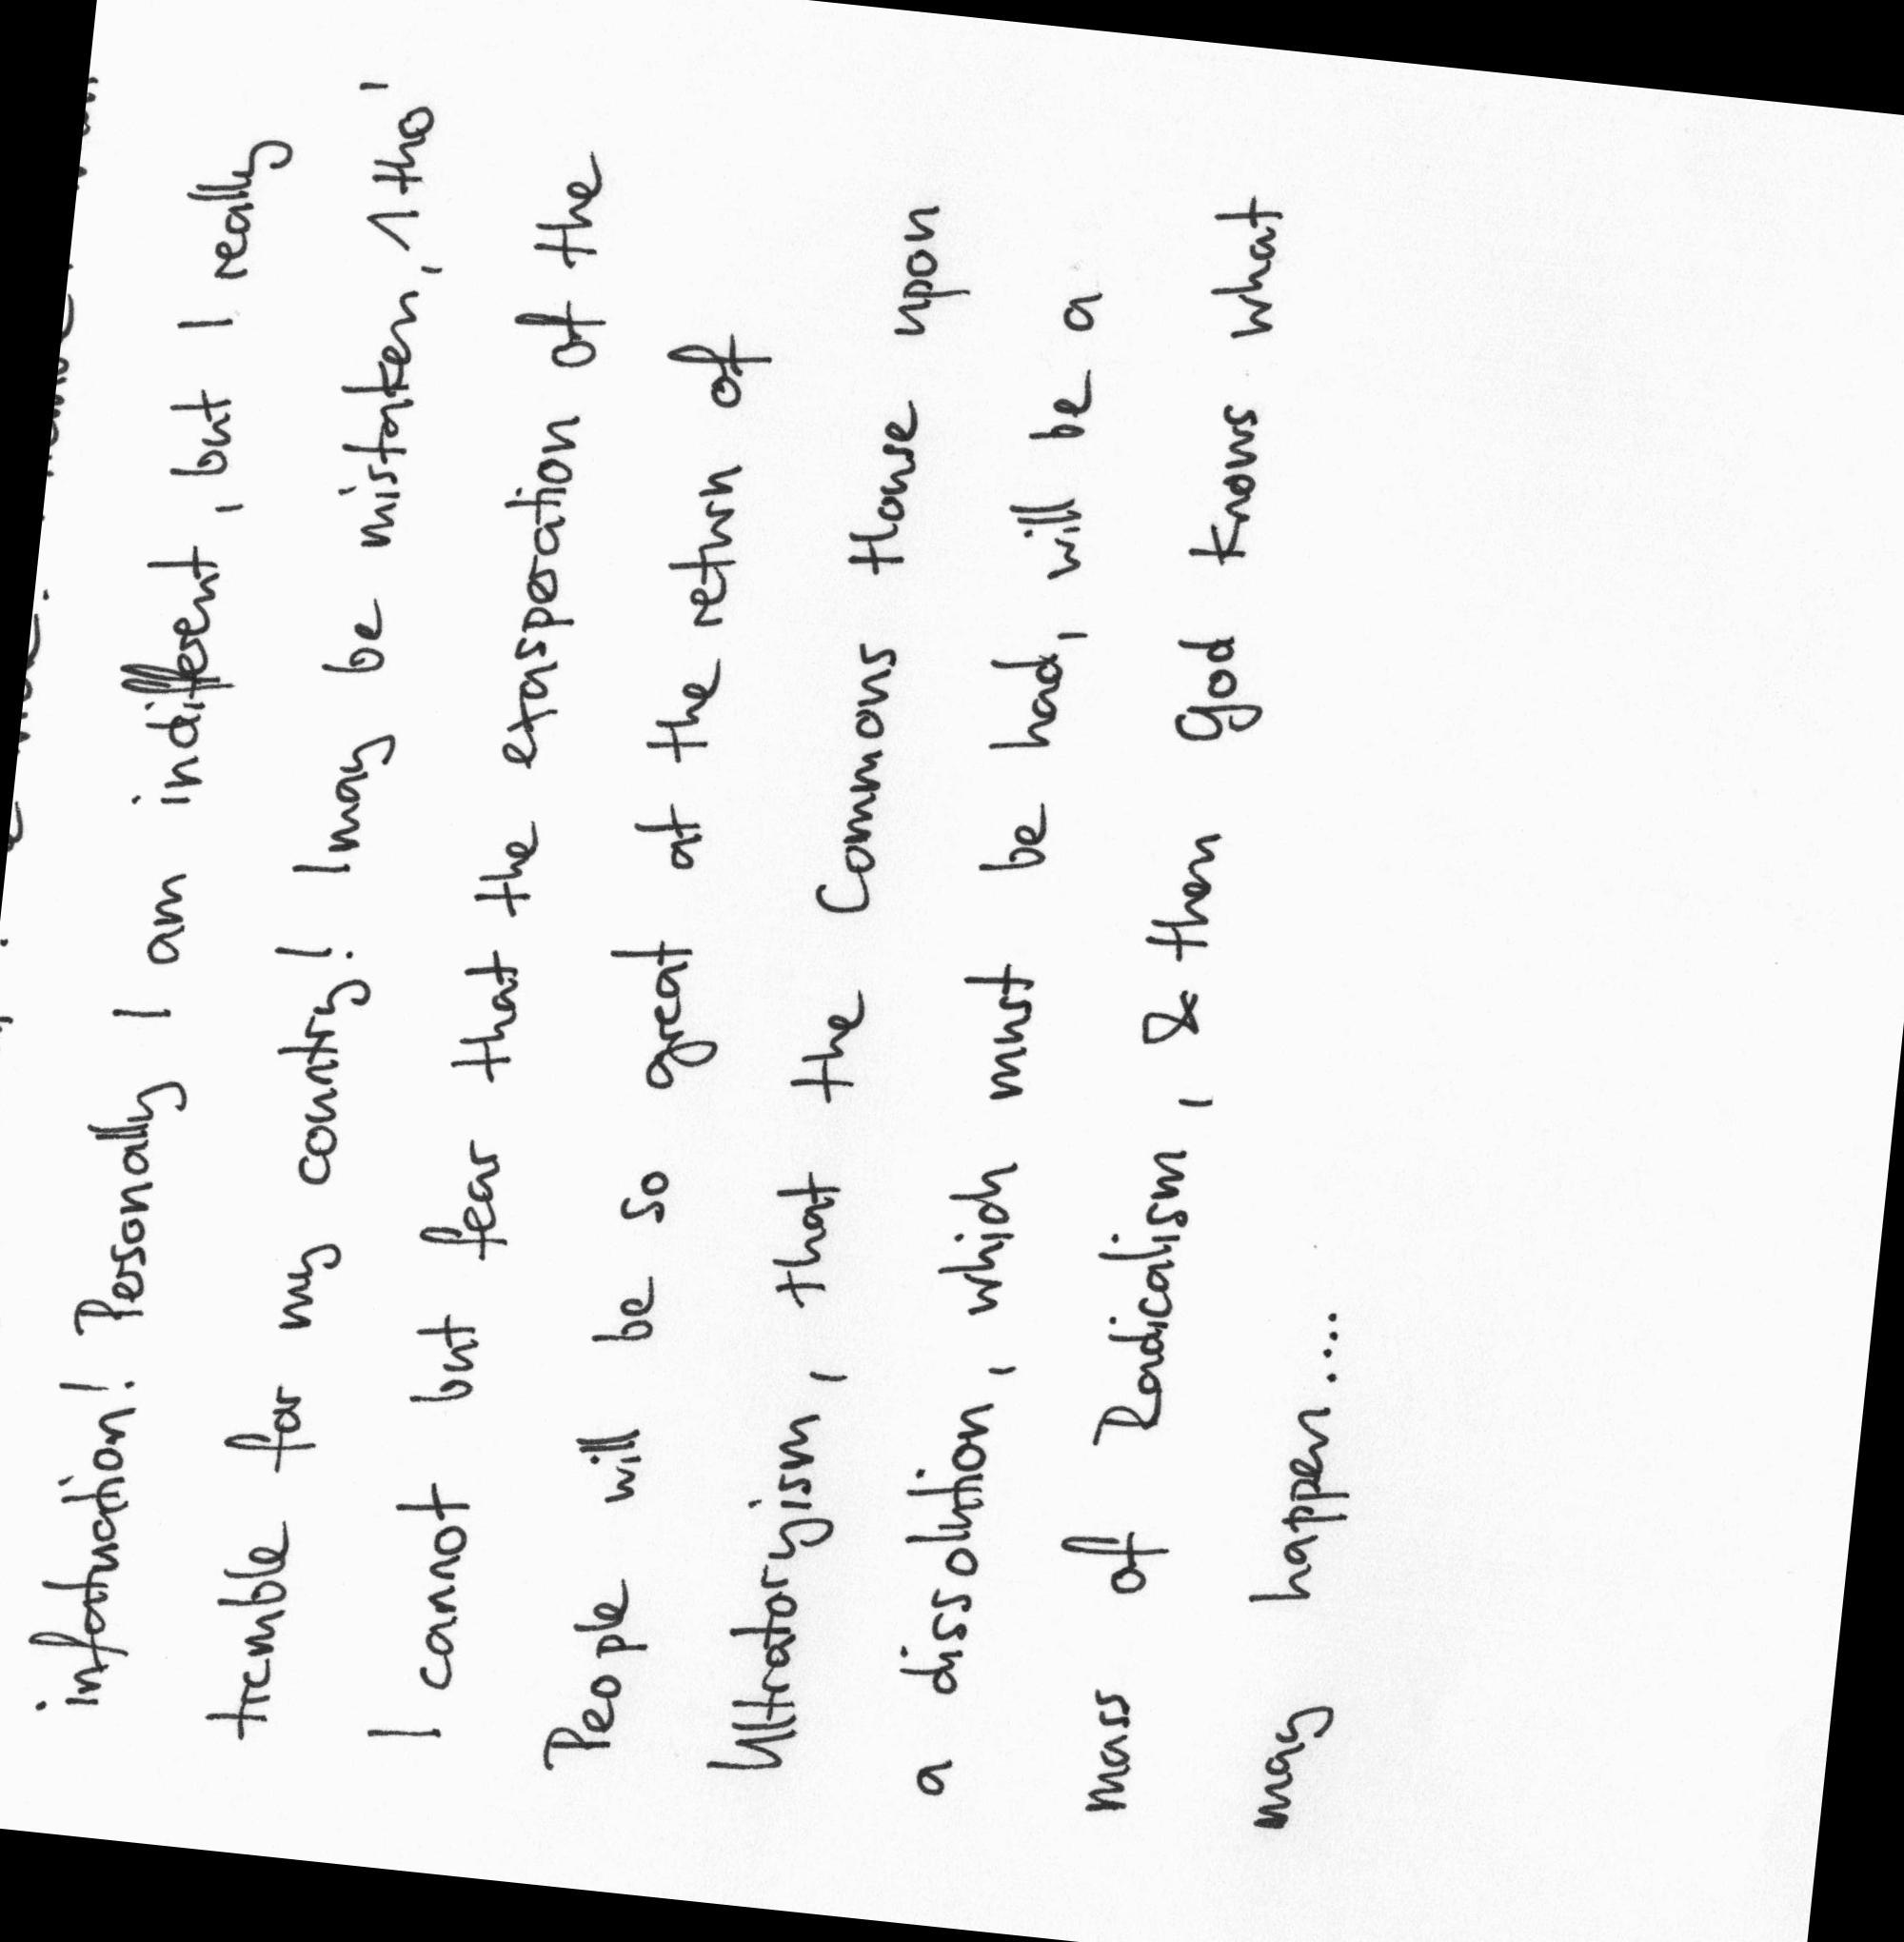 infatuation! Personally I am indifferent, but I really
tremble for my country! I may be mistaken, 1 tho'
I cannot but fear that the exasperation of the
People will be so great at the return of
Ultratoryism, that the Commons House upon
a dissolution, which must be had, will be a
mass of Radicalism, & then God knows what
may happen....